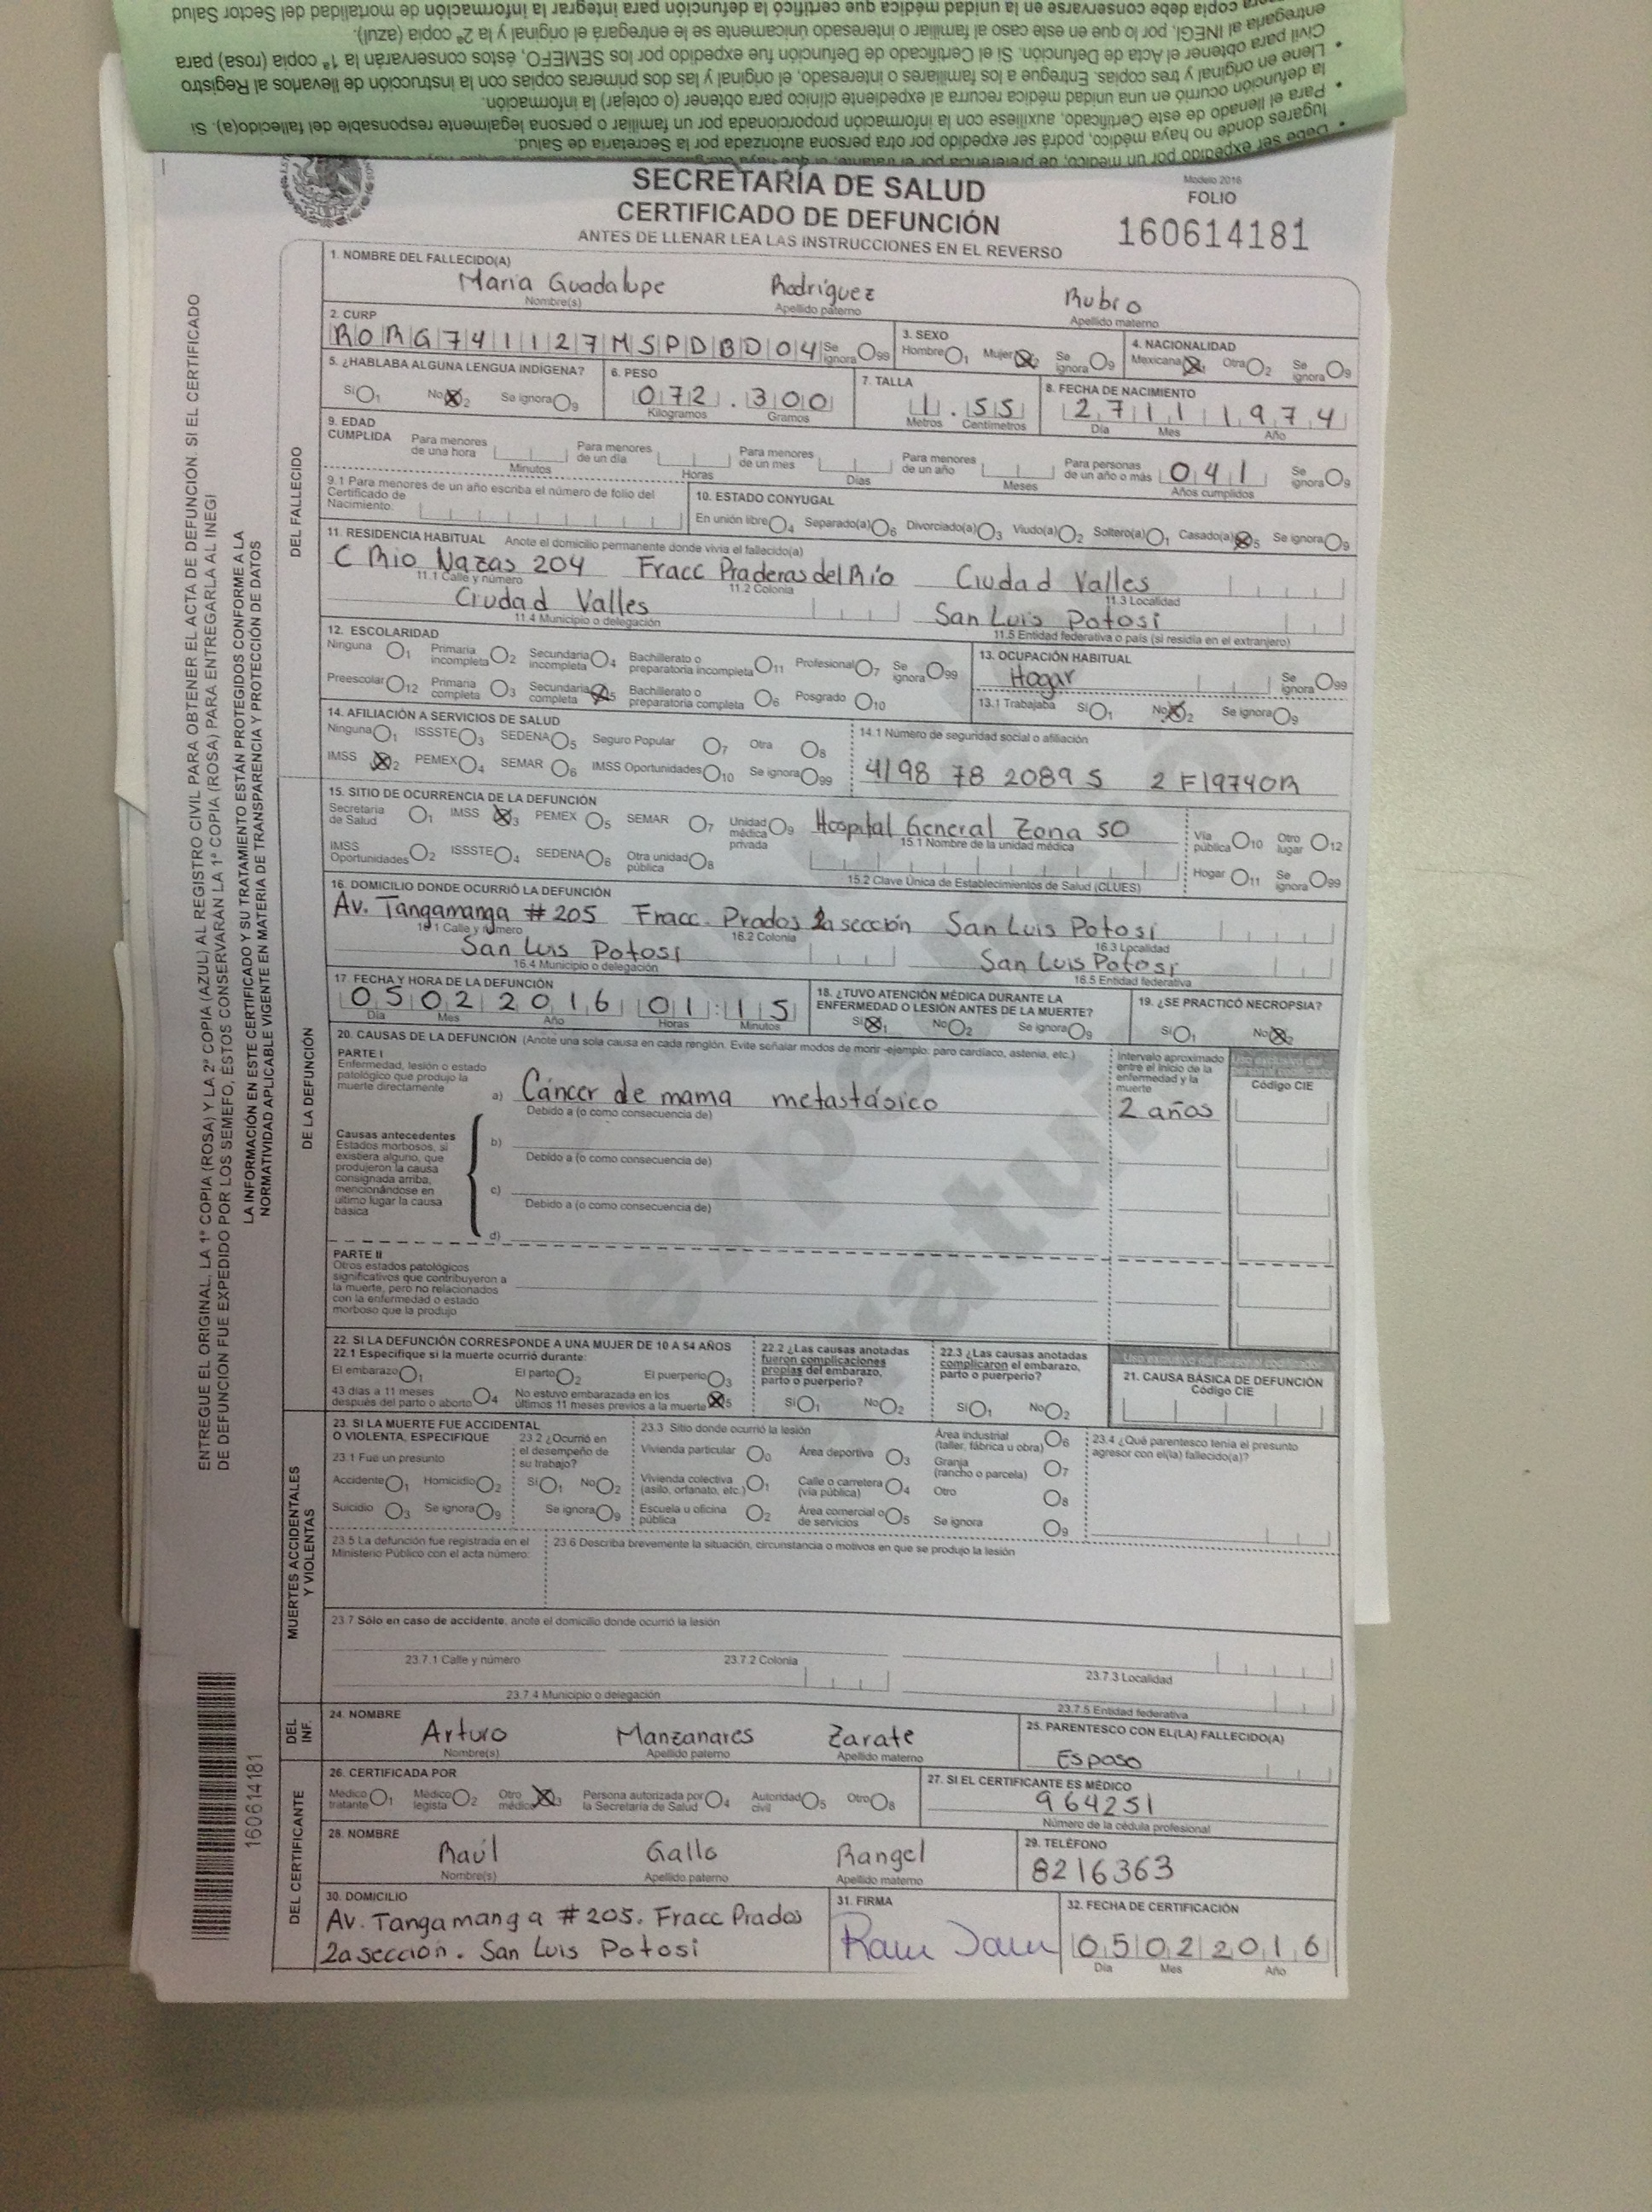 copia debe conservarse en la unidad médica que certificó la defunción para integrar la información de mortalidad del Sector Salud
entregarla al INEGI, por lo que en este caso al familiar o interesado únicamente se le entregará el original y la 2ª copia (azul).
Civil para obtener el Acta de Defunción. Si el Certificado de Defunción fue expedido por los SEMEFO, éstos conservarán la 1ª copia (rosa) para
• Llene en original y tres copias. Entregue a los familiares o interesado, el original y las dos primeras copias con la instrucción de llevarlos al Registro
la defunción ocurrió en una unidad médica recurra al expediente clínico para obtener (o cotejar) la información.
• Para el llenado de este Certificado, auxíliese con la información proporcionada por un familiar o persona legalmente responsable del fallecido(a). Si
lugares donde no haya médico, podrá ser expedido por otra persona autorizada por la Secretaría de Salud.
• Debe ser expedido por un médico, de preferencia por el tratante,
SECRETARÍA DE SALUD
CERTIFICADO DE DEFUNCIÓN
ANTES DE LLENAR LEA LAS INSTRUCCIONES EN EL REVERSO
Modelo 2016
FOLIO
160614181
ENTREGUE EL ORIGINAL, LA 1ª COPIA (ROSA) Y LA 2ª COPIA (AZUL) AL REGISTRO CIVIL PARA OBTENER EL ACTA DE DEFUNCIÓN. SI EL CERTIFICADO
DE DEFUNCIÓN FUE EXPEDIDO POR LOS SEMEFO, ÉSTOS CONSERVARÁN LA 1ª COPIA (ROSA) PARA ENTREGARLA AL INEGI
LA INFORMACIÓN EN ESTE CERTIFICADO Y SU TRATAMIENTO ESTÁN PROTEGIDOS CONFORME A LA
NORMATIVIDAD APLICABLE VIGENTE EN MATERIA DE TRANSPARENCIA Y PROTECCIÓN DE DATOS
160614181
DEL FALLECIDO
1. NOMBRE DEL FALLECIDO(A)
Maria Guadalupe Rodríguez Rubio
Nombre(s) Apellido paterno Apellido materno
2. CURP
RORG741127MSPDBD04 Se ignora 99
3. SEXO
Hombre 1 Mujer 2 Se ignora 9
4. NACIONALIDAD
Mexicana 1 Otra 2 Se ignora 9
5. ¿HABLABA ALGUNA LENGUA INDÍGENA?
Sí 1 No 2 Se ignora 9
6. PESO
072.300
Kilogramos Gramos
7. TALLA
1.55
Metros Centímetros
8. FECHA DE NACIMIENTO
27 11 1974
Día Mes Año
9. EDAD CUMPLIDA
Para menores de una hora Minutos
Para menores de un día Horas
Para menores de un mes Días
Para menores de un año Meses
Para personas de un año o más 041 Años cumplidos
Se ignora 9
9.1 Para menores de un año escriba el número de folio del Certificado de Nacimiento:
10. ESTADO CONYUGAL
En unión libre 4 Separado(a) 6 Divorciado(a) 3 Viudo(a) 2 Soltero(a) 1 Casado(a) 5 Se ignora 9
11. RESIDENCIA HABITUAL Anote el domicilio permanente donde vivía el fallecido(a)
C Rio Nazas 204 Fracc Praderas del Río Ciudad Valles
11.1 Calle y número 11.2 Colonia 11.3 Localidad
Ciudad Valles San Luis Potosi
11.4 Municipio o delegación 11.5 Entidad federativa o país (si residía en el extranjero)
12. ESCOLARIDAD
Ninguna 1 Primaria incompleta 2 Secundaria incompleta 4 Bachillerato o preparatoria incompleta 11 Profesional 7 Se ignora 99
Preescolar 12 Primaria completa 3 Secundaria completa 5 Bachillerato o preparatoria completa 6 Posgrado 10
13. OCUPACIÓN HABITUAL
Hogar
Se ignora 99
13.1 Trabajaba Sí 1 No 2 Se ignora 9
14. AFILIACIÓN A SERVICIOS DE SALUD
Ninguna 1 ISSSTE 3 SEDENA 5 Seguro Popular 7 Otra 8
IMSS 2 PEMEX 4 SEMAR 6 IMSS Oportunidades 10 Se ignora 99
14.1 Número de seguridad social o afiliación
4198 78 2089 5 2F19740R
DE LA DEFUNCIÓN
15. SITIO DE OCURRENCIA DE LA DEFUNCIÓN
Secretaría de Salud 1 IMSS 3 PEMEX 5 SEMAR 7 Unidad médica privada 9
IMSS Oportunidades 2 ISSSTE 4 SEDENA 6 Otra unidad pública 8
Hospital General Zona 50
15.1 Nombre de la unidad médica
15.2 Clave Única de Establecimientos de Salud (CLUES)
Vía pública 10 Otro lugar 12
Hogar 11 Se ignora 99
16. DOMICILIO DONDE OCURRIÓ LA DEFUNCIÓN
Av. Tangamanga # 205 Fracc. Prados 2a sección San Luis Potosí
16.1 Calle y número 16.2 Colonia 16.3 Localidad
San Luis Potosí San Luis Potosí
16.4 Municipio o delegación 16.5 Entidad federativa
17 FECHA Y HORA DE LA DEFUNCIÓN
05 02 2016 01:15
Día Mes Año Horas Minutos
18. ¿TUVO ATENCIÓN MÉDICA DURANTE LA ENFERMEDAD O LESIÓN ANTES DE LA MUERTE?
Sí 1 No 2 Se ignora 9
19. ¿SE PRACTICÓ NECROPSIA?
Sí 1 No 2
20. CAUSAS DE LA DEFUNCIÓN (Anote una sola causa en cada renglón. Evite señalar modos de morir -ejemplo: paro cardíaco, astenia, etc.)
PARTE I
Enfermedad, lesión o estado patológico que produjo la muerte directamente
a) Cáncer de mama metastásico
Debido a (o como consecuencia de)
Intervalo aproximado entre el inicio de la enfermedad y la muerte
2 años
Código CIE
Causas antecedentes
Estados morbosos, si existiera alguno, que produjeron la causa consignada arriba, mencionándose en último lugar la causa básica
b)
Debido a (o como consecuencia de)
c)
Debido a (o como consecuencia de)
d)
PARTE II
Otros estados patológicos significativos que contribuyeron a la muerte, pero no relacionados con la enfermedad o estado morboso que la produjo
22. SI LA DEFUNCIÓN CORRESPONDE A UNA MUJER DE 10 A 54 AÑOS
22.1 Especifique si la muerte ocurrió durante:
El embarazo 1 El parto 2 El puerperio 3
43 días a 11 meses después del parto o aborto 4 No estuvo embarazada en los últimos 11 meses previos a la muerte 5
22.2 ¿Las causas anotadas fueron complicaciones propias del embarazo, parto o puerperio?
Sí 1 No 2
22.3 ¿Las causas anotadas complicaron el embarazo, parto o puerperio?
Sí 1 No 2
21. CAUSA BÁSICA DE DEFUNCIÓN
Código CIE
MUERTES ACCIDENTALES Y VIOLENTAS
23. SI LA MUERTE FUE ACCIDENTAL O VIOLENTA, ESPECIFIQUE
23.1 Fue un presunto
Accidente 1 Homicidio 2
Suicidio 3 Se ignora 9
23.2 ¿Ocurrió en el desempeño de su trabajo?
Sí 1 No 2
Se ignora 9
23.3 Sitio donde ocurrió la lesión
Vivienda particular 0 Área deportiva 3 Área industrial (taller, fábrica u obra) 6
Vivienda colectiva (asilo, orfanato, etc.) 1 Calle o carretera (vía pública) 4 Granja (rancho o parcela) 7
Otro 8
Escuela u oficina pública 2 Área comercial o de servicios 5 Se ignora 9
23.4 ¿Qué parentesco tenía el presunto agresor con el(la) fallecido(a)?
23.5 La defunción fue registrada en el Ministerio Público con el acta número:
23.6 Describa brevemente la situación, circunstancia o motivos en que se produjo la lesión
23.7 Sólo en caso de accidente, anote el domicilio donde ocurrió la lesión
23.7.1 Calle y número 23.7.2 Colonia 23.7.3 Localidad
23.7.4 Municipio o delegación 23.7.5 Entidad federativa
DEL INF.
24. NOMBRE
Arturo Manzanares Zarate
Nombre(s) Apellido paterno Apellido materno
25. PARENTESCO CON EL(LA) FALLECIDO(A)
Esposo
DEL CERTIFICANTE
26. CERTIFICADA POR
Médico tratante 1 Médico legista 2 Otro médico 3 Persona autorizada por la Secretaría de Salud 4 Autoridad civil 5 Otro 8
27. SI EL CERTIFICANTE ES MÉDICO
964251
Número de la cédula profesional
28. NOMBRE
Raúl Gallo Rangel
Nombre(s) Apellido paterno Apellido materno
29. TELÉFONO
8216363
30. DOMICILIO
Av. Tangamanga # 205. Fracc Prados
2a sección. San Luis Potosi
31. FIRMA
32. FECHA DE CERTIFICACIÓN
05 02 2016
Día Mes Año